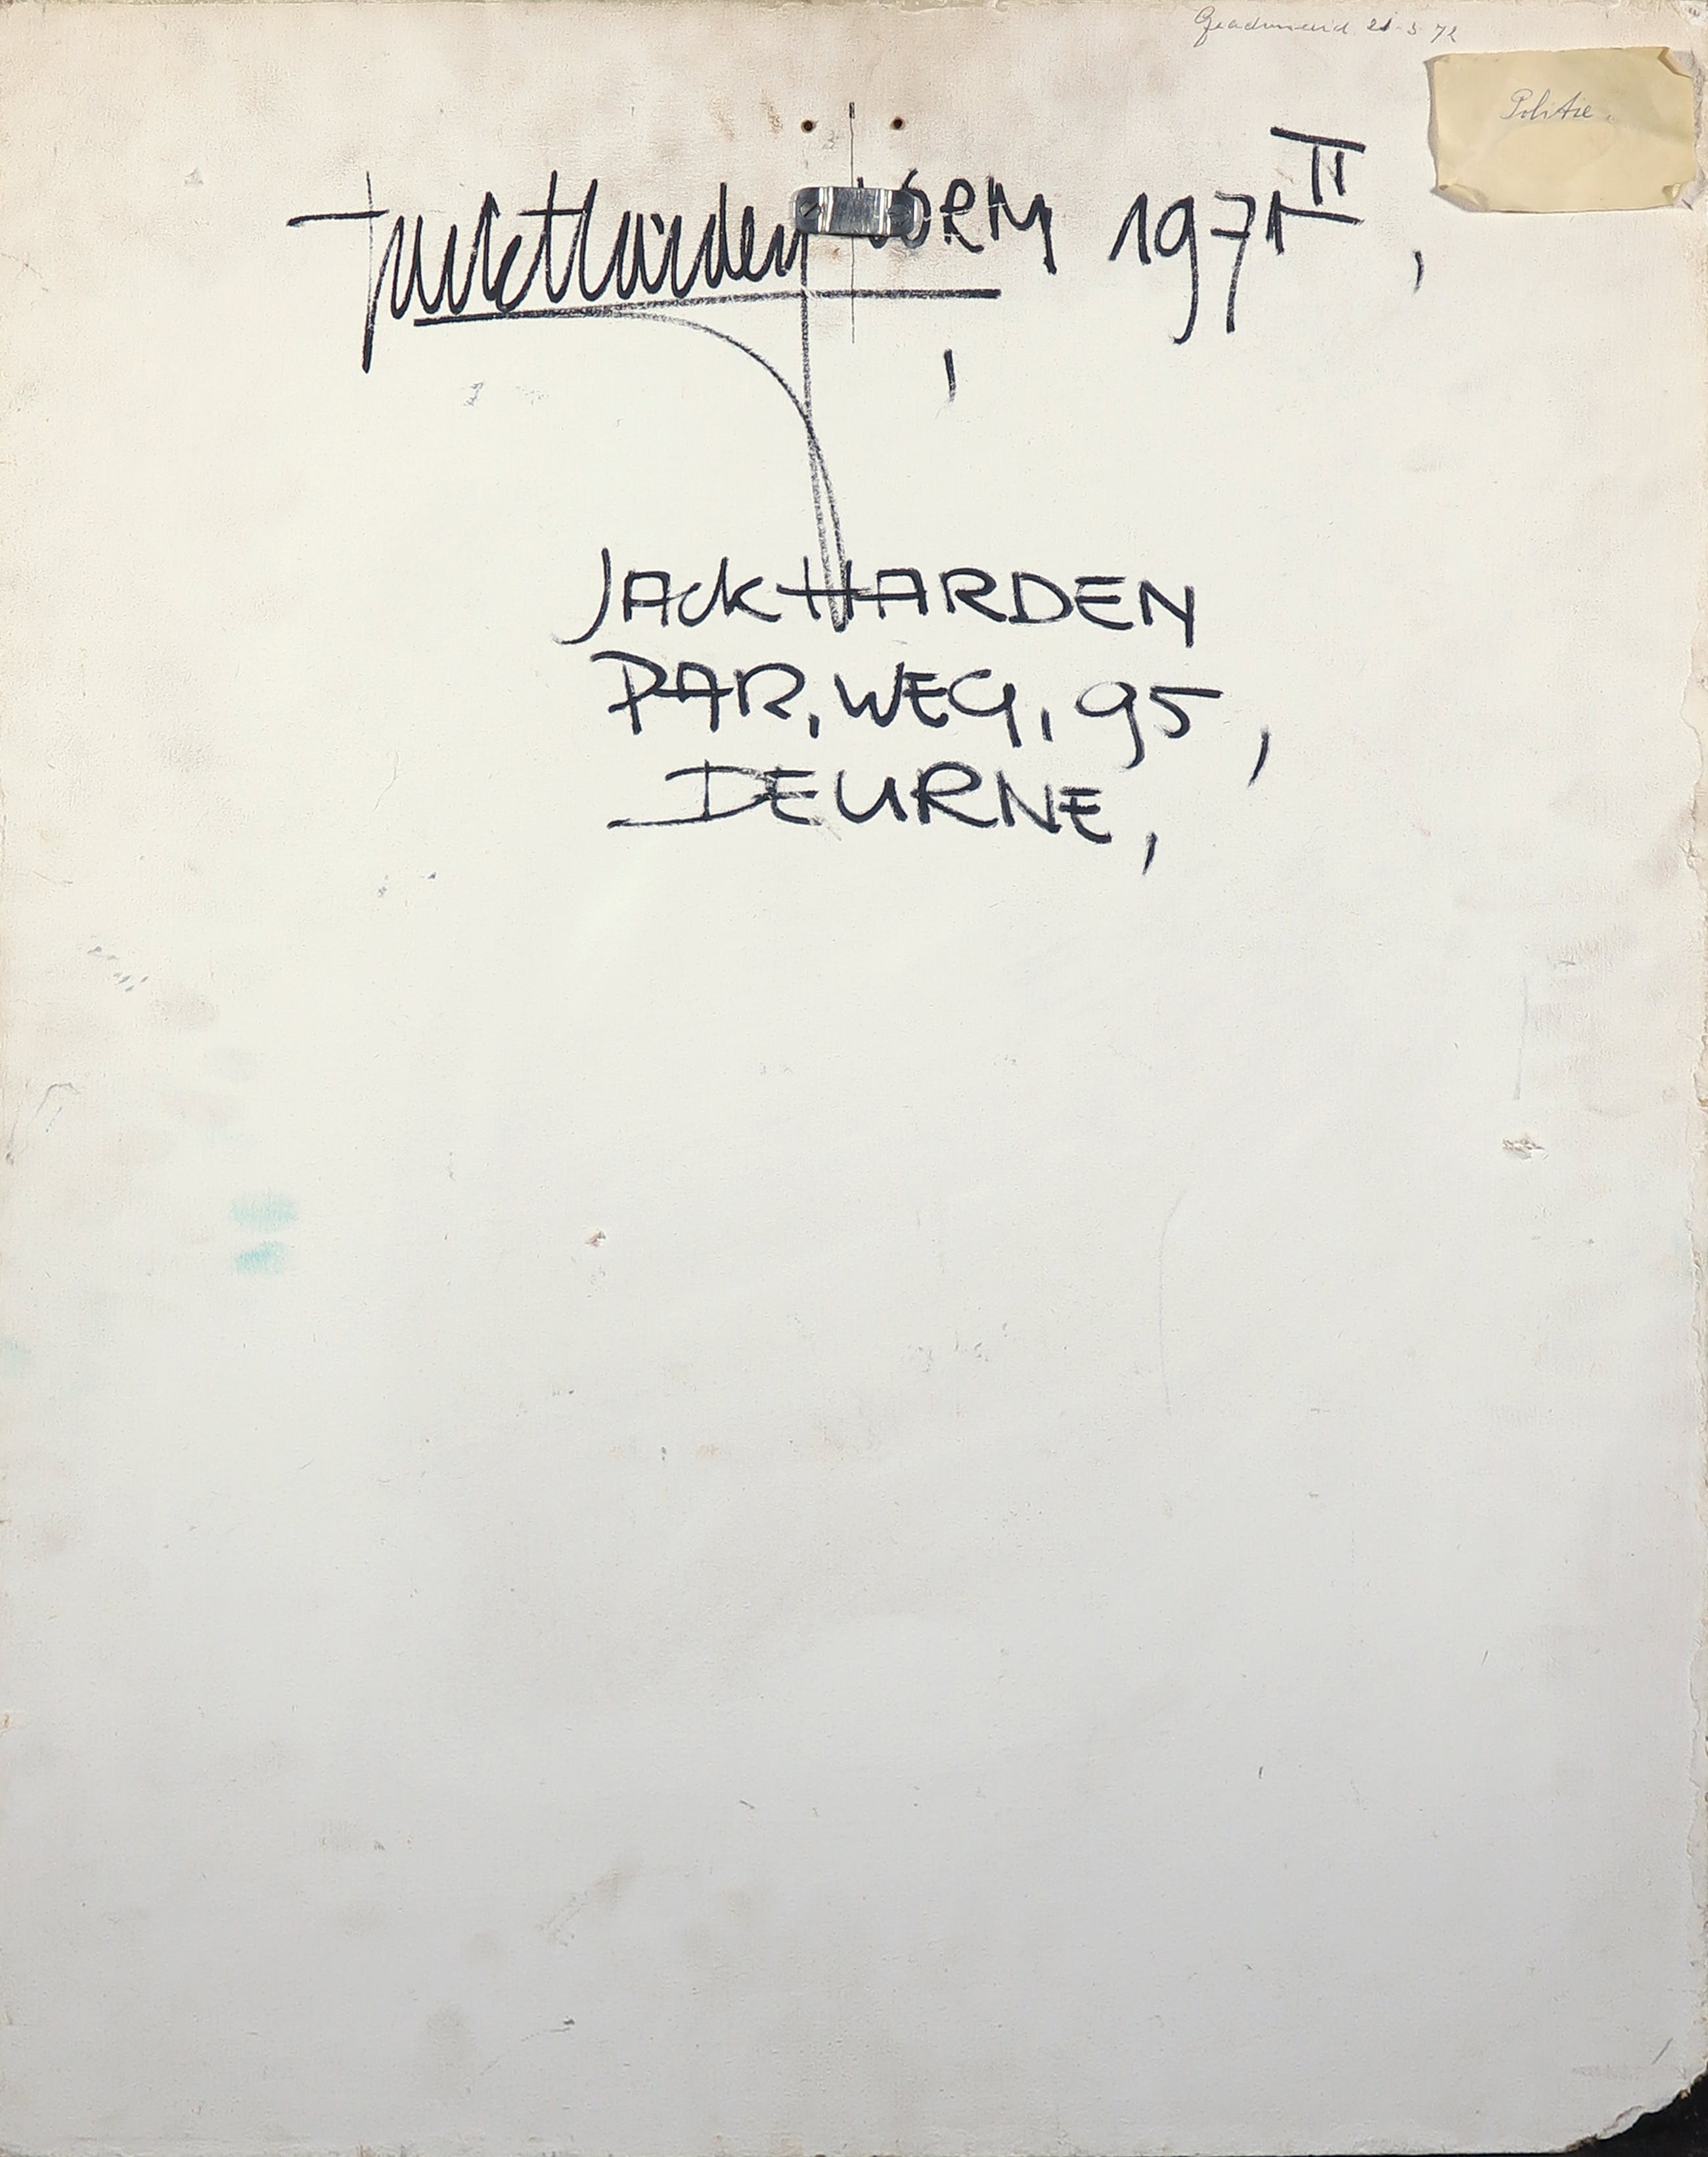 21-3-72
Politie.
Jack Harden 1971 II,
JACK HARDEN
PAR, WEG, 95,
DEURNE,